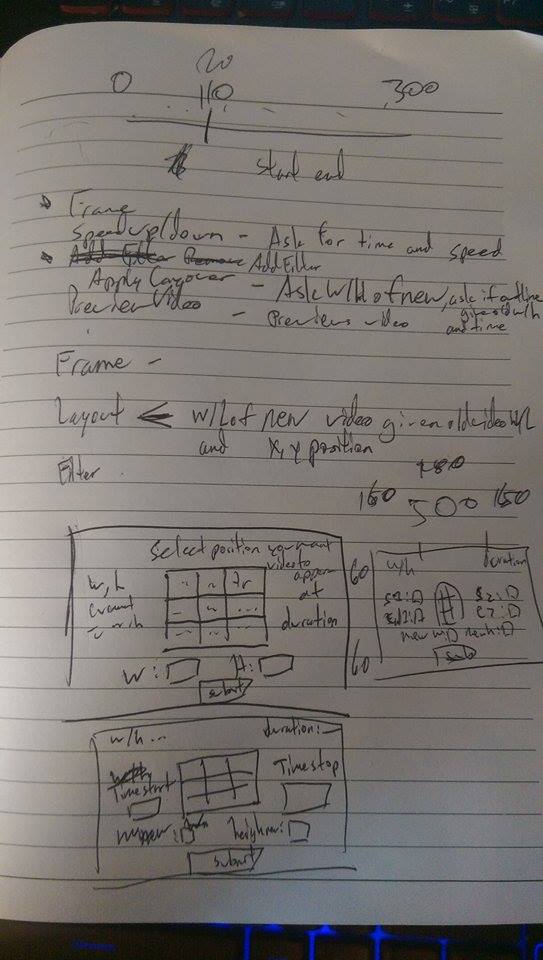 20
0 110 300
start end
Frame
Speedup/down - Ask for time and speed
Add Filter Remove Add Filter
Apply Layover - Ask W/H of new, ask if outline
given old w/h
Preview Video - Previews video and time
Frame -
Layout < w/h of new video given old video w/h
and x, y position
Filter
180
160 500 160
Select position you want
video to
appear
at
w, h
current
duration
W: H:
submit
60
60
w/h duration
S1: S2:
E1: E2:
new w: new h:
sub
w/h ... duration:
Time start Time stop
new w: height new:
submit